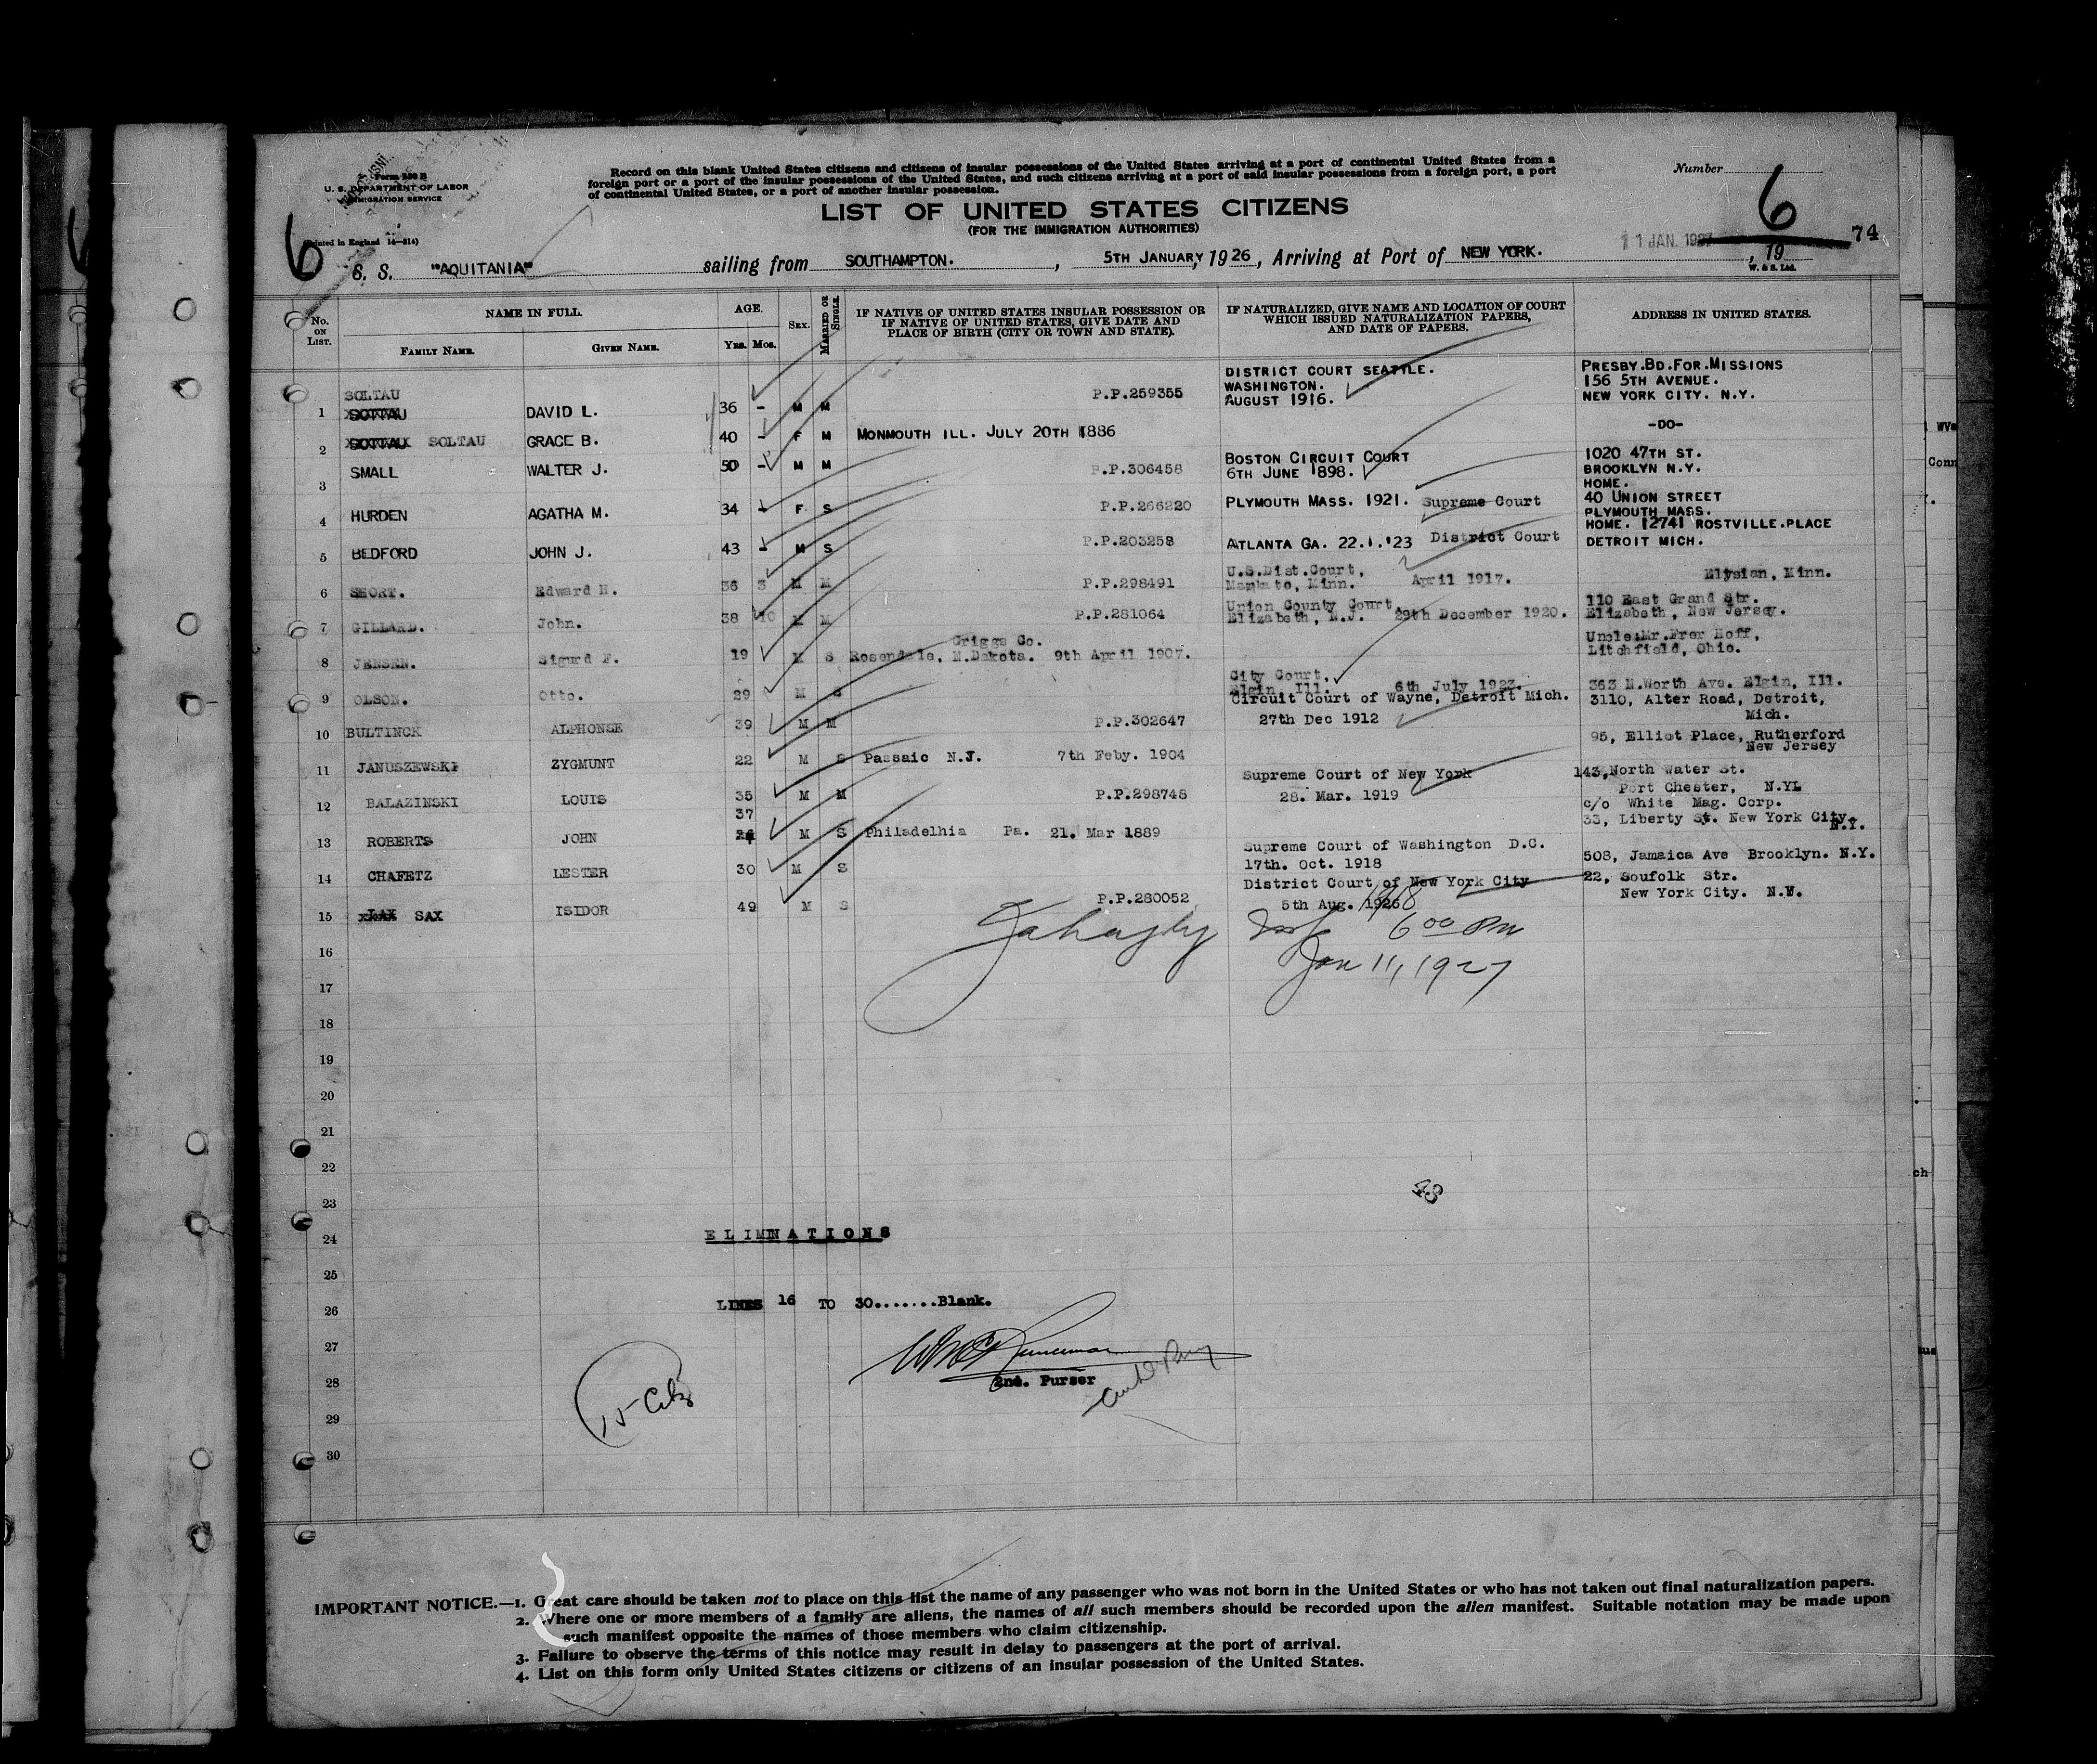 Form 500 B
U. S. DEPARTMENT OF LABOR
IMMIGRATION SERVICE
(Printed in England 14—814)
Record on this blank United States citizens and citizens of insular possessions of the United States arriving at a port of continental United States from a
foreign port or a port of the insular possessions of the United States, and such citizens arriving at a port of said insular possessions from a foreign port, a port
of continental United States, or a port of another insular possession.
Number 6
LIST OF UNITED STATES CITIZENS
(FOR THE IMMIGRATION AUTHORITIES)
6
11 JAN. 1927
74
S. S. "AQUITANIA" sailing from SOUTHAMPTON. , 5TH JANUARY, 1926, Arriving at Port of NEW YORK. , 19
W. & S. Ltd.
No. ON LIST.
NAME IN FULL.
FAMILY NAME. GIVEN NAME.
AGE.
YRS. MOS.
SEX.
MARRIED OR SINGLE.
IF NATIVE OF UNITED STATES INSULAR POSSESSION OR
IF NATIVE OF UNITED STATES, GIVE DATE AND
PLACE OF BIRTH (CITY OR TOWN AND STATE).
IF NATURALIZED, GIVE NAME AND LOCATION OF COURT
WHICH ISSUED NATURALIZATION PAPERS,
AND DATE OF PAPERS.
ADDRESS IN UNITED STATES.
1 SOLTAU DAVID L. 36 - M M P.P.259355 DISTRICT COURT SEATTLE. WASHINGTON. AUGUST 1916. PRESBY.BD.FOR.MISSIONS 156 5TH AVENUE. NEW YORK CITY. N.Y.
2 SOLTAU GRACE B. 40 - F M MONMOUTH ILL. JULY 20TH 1886 -DO-
3 SMALL WALTER J. 50 - M M P.P.306458 BOSTON CIRCUIT COURT 6TH JUNE 1898. 1020 47TH ST. BROOKLYN N.Y. HOME.
4 HURDEN AGATHA M. 34 - F S P.P.266220 PLYMOUTH MASS. 1921. Supreme Court 40 UNION STREET PLYMOUTH MASS.
5 BEDFORD JOHN J. 43 - M S P.P.203258 ATLANTA GA. 22.1.'23 District Court HOME. 12741 ROSTVILLE.PLACE DETROIT MICH.
6 SHORT. Edward H. 36 3 M M P.P.298491 U.S.Dist.Court, Mankato, Minn. April 1917. Elysian, Minn.
7 GILLARD. John. 38 10 M M P.P.281064 Union County Court, Elizabeth, N.J. 29th December 1920. 110 East Grand Str. Elizabeth, New Jersey.
8 JENSEN. Sigurd F. 19 M S Griggs Co. Rosendale, N.Dakota. 9th April 1907. Uncle:Mr.Frer Hoff, Litchfield, Ohio.
9 OLSON. Otto. 29 M S City Court, Elgin Ill. 6th July 1923. 363 N.Worth Ave. Elgin, Ill.
10 BULTINCK ALPHONSE 39 M M P.P.302647 Circuit Court of Wayne, Detroit Mich. 27th Dec 1912 3110, Alter Road, Detroit, Mich.
11 JANUSZEWSKI ZYGMUNT 22 M S Passaic N.J. 7th Feby. 1904 95, Elliot Place, Rutherford New Jersey
12 BALAZINSKI LOUIS 35 M M P.P.298748 Supreme Court of New York 28. Mar. 1919 143,North Water St. Port Chester, N.YL
13 ROBERTS JOHN 37 M S Philadelhia Pa. 21. Mar 1889 c/o White Mag. Corp. 33, Liberty St. New York City. N.Y.
14 CHAFETZ LESTER 30 M S Supreme Court of Washington D.C. 17th. Oct. 1918 508, Jamaica Ave Brooklyn. N.Y.
15 SAX ISIDOR 49 M S P.P.280052 District Court of New York City 5th Aug. 1926 1918 22, Soufolk Str. New York City. N.Y.
6 00 PM
16
Jan 11, 1927
17
18
19
20
21
22
23
48
24
ELIMINATIONS
25
26 LINES 16 TO 30.......Blank.
27
28 2nd. Purser
29
30
IMPORTANT NOTICE.—1. Great care should be taken not to place on this list the name of any passenger who was not born in the United States or who has not taken out final naturalization papers.
2. Where one or more members of a family are aliens, the names of all such members should be recorded upon the alien manifest. Suitable notation may be made upon
such manifest opposite the names of those members who claim citizenship.
3. Failure to observe the terms of this notice may result in delay to passengers at the port of arrival.
4. List on this form only United States citizens or citizens of an insular possession of the United States.